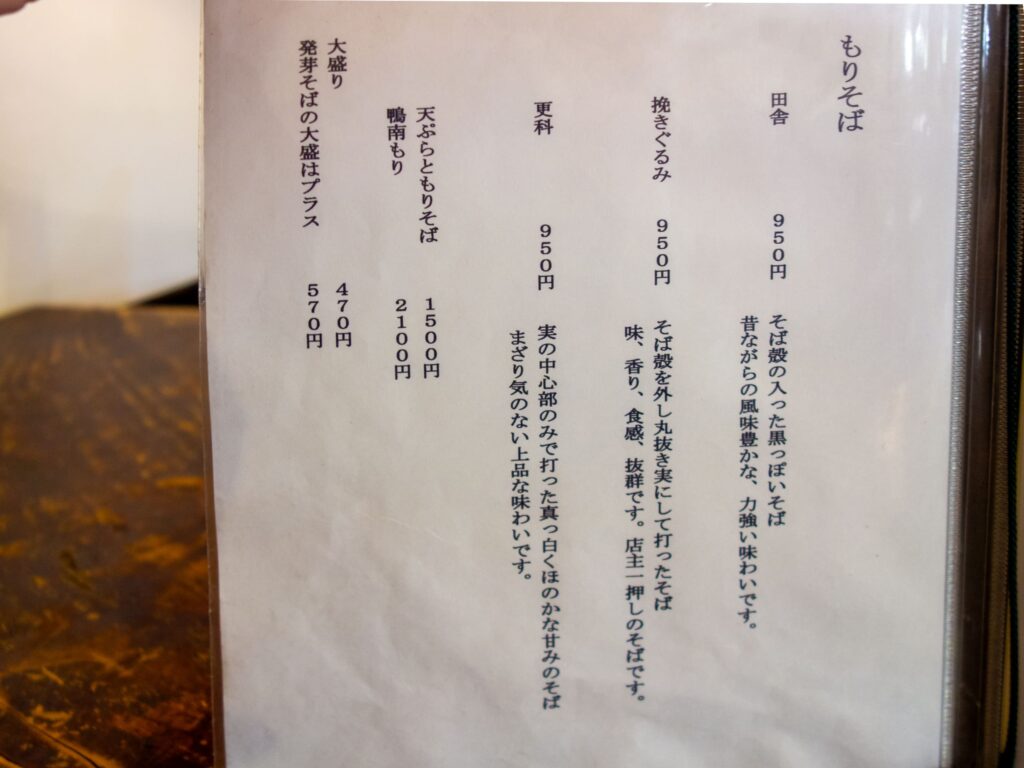 もりそば
田舎　９５０円　そば殻の入った黒っぽいそば
昔ながらの風味豊かな、力強い味わいです。
挽きぐるみ　９５０円　そば殻を外し丸抜き実にして打ったそば
味、香り、食感、抜群です。店主一押しのそばです。
更科　９５０円　実の中心部のみで打った真っ白くほのかな甘みのそば
まざり気のない上品な味わいです。
天ぷらともりそば　１５００円
鴨南もり　２１００円
大盛り　４７０円
発芽そばの大盛はプラス　５７０円